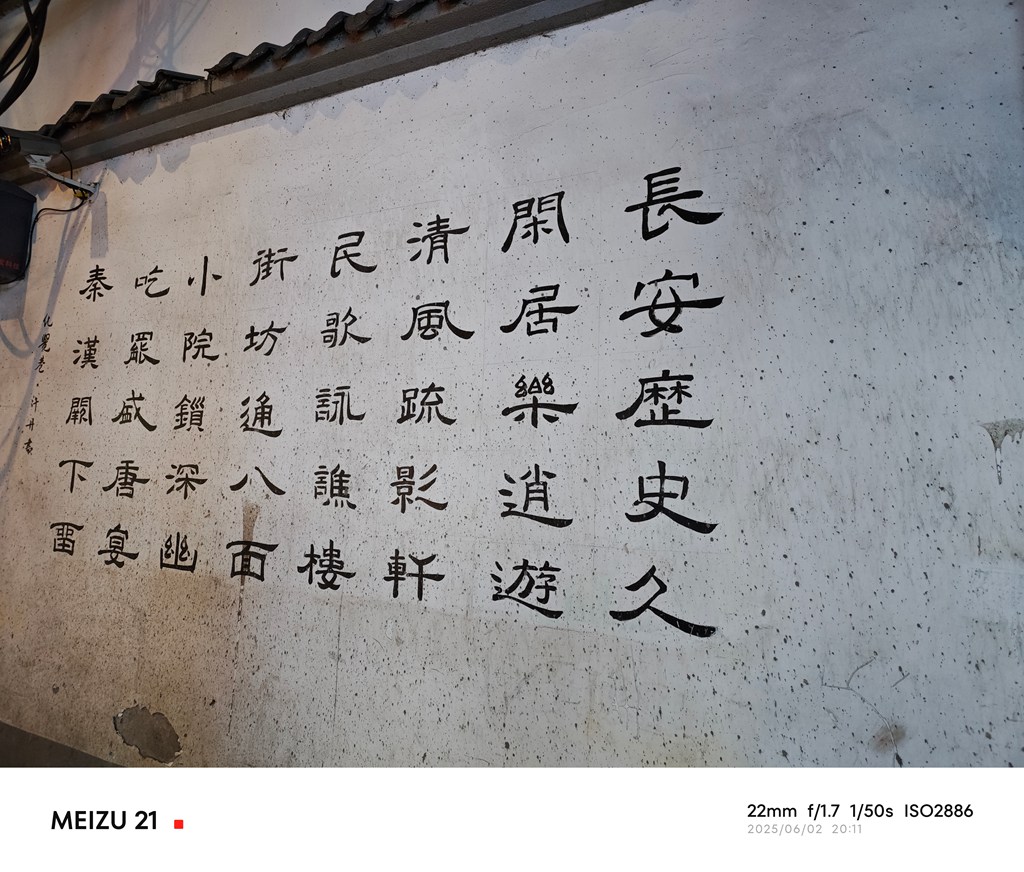 長安歷史久
閑居樂逍遊
清風疏影軒
民歌詠譙樓
街坊通八面
小院鎖深幽
吃罷盛唐宴
秦漢闕下留
化覺巷
MEIZU 21
22mm f/1.7 1/50s ISO2886
2025/06/02 20:11